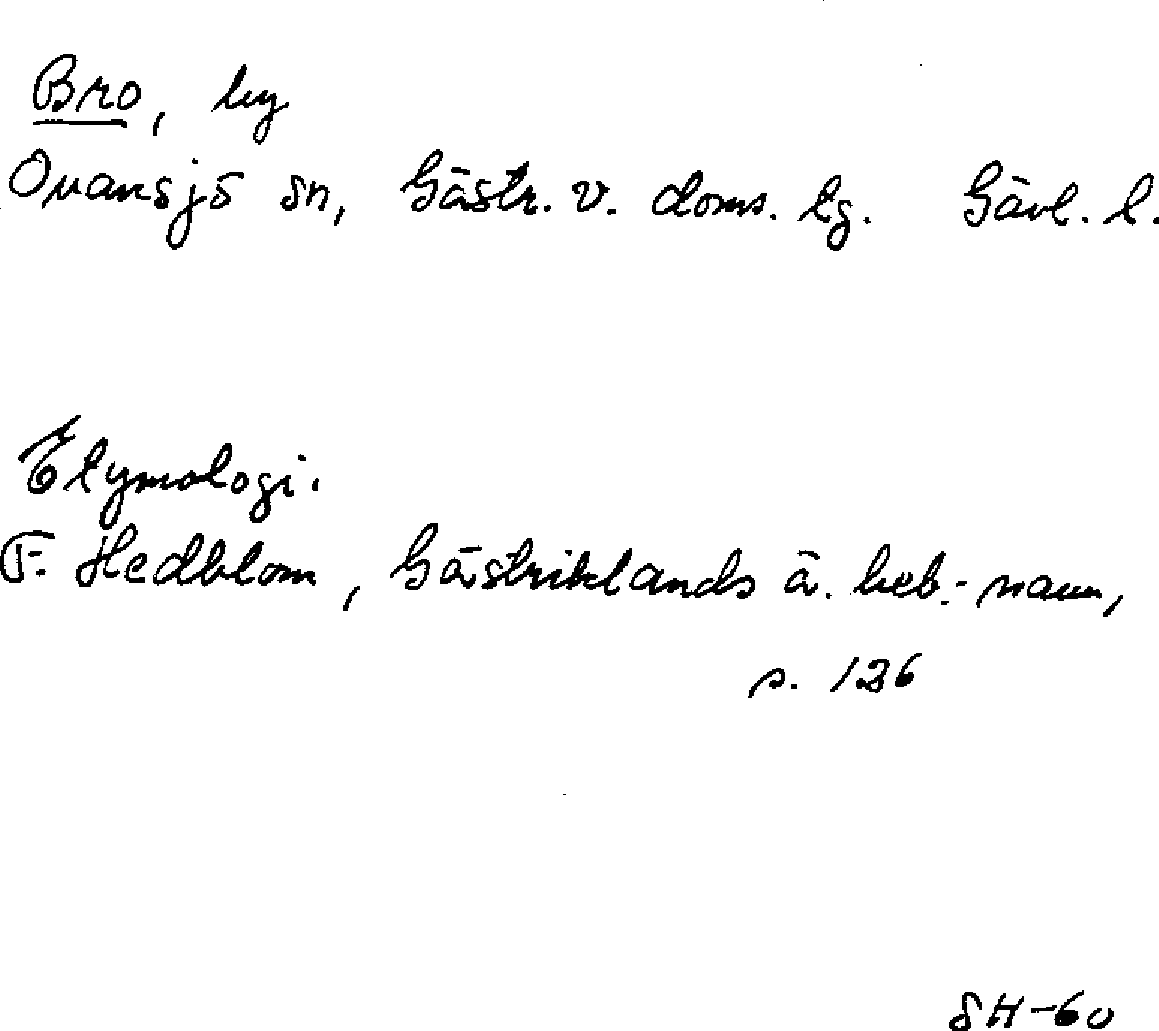 Bro, by
Ovansjö sn, Gästr. v. doms. lg. Gävl. l.
Etymologi.
F. Hedblom, Gästriklands ä. beb.-namn,
s. 126
SH-60